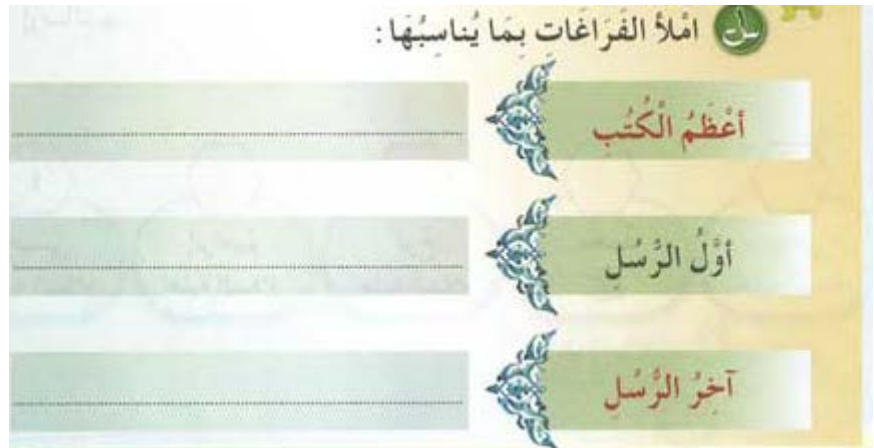 سل امْلأ الفَرَاغَاتِ بِمَا يُناسِبُهَا :
أعْظَمُ الْكُتُبِ
أوَّلُ الرُّسُلِ
آخِرُ الرُّسُلِ